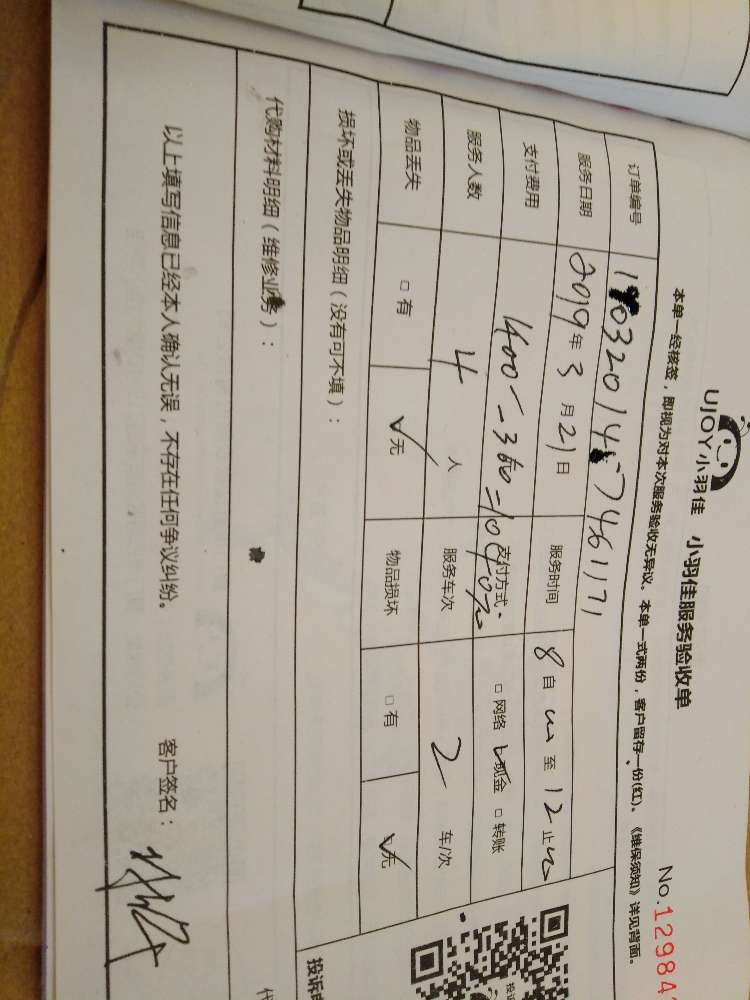 UJOY小羽佳 小羽佳服务验收单
No.12984
本单一经核签，即视为对本次服务验收无异议。本单一式两份，客户留存一份(红)。《维保须知》详见背面。
订单编号
服务日期 2019年 3 月 21 日 服务时间 8 自 至 12 止
支付费用 1400-360=1040元 支付方式 □ 网络 现金 □ 转账
服务人数 4 人 服务车次 2 车/次
物品丢失 □ 有 ✓无 物品损坏 □ 有 ✓无
损坏或丢失物品明细（没有可不填）：
代购材料明细（维修业务）：
以上填写信息已经本人确认无误，不存在任何争议纠纷。 客户签名：
投诉
代